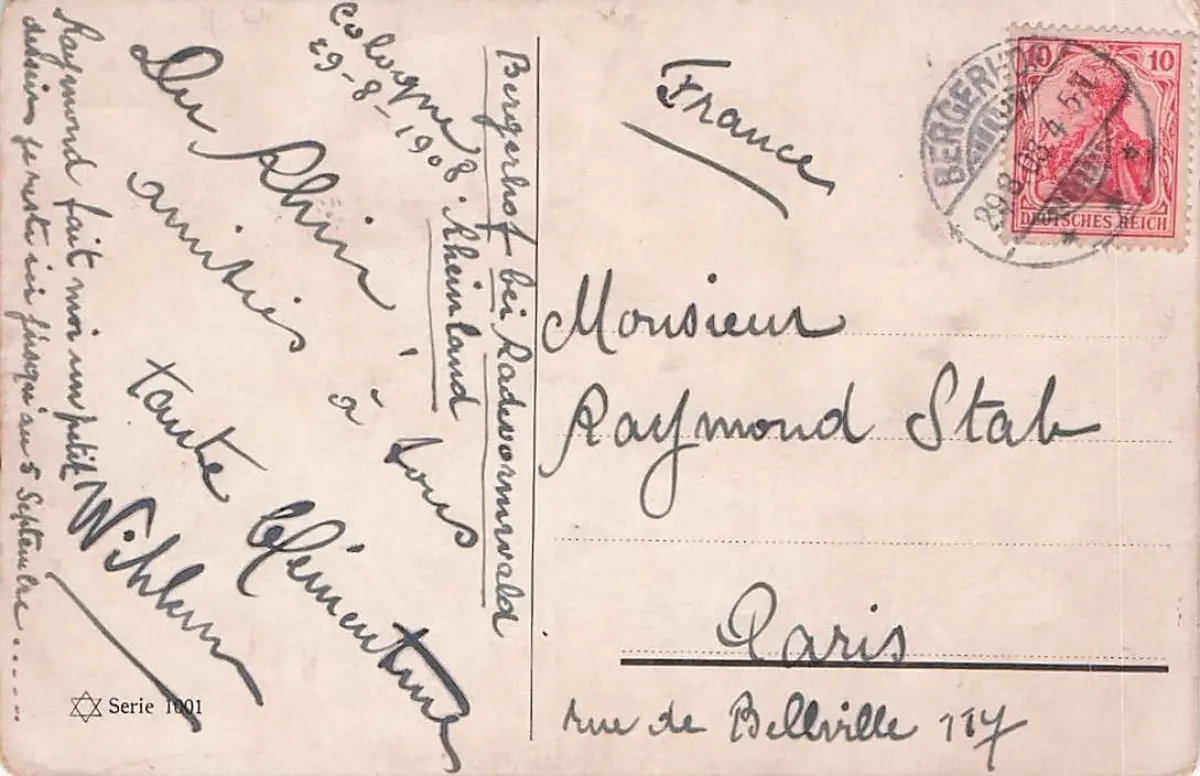 Cologne
29-8-1908
Du Rhin
amitiés
à tous
Tante Clémentine
Wihlem
Raymond fait moi un petit
dessin je reste ici jusqu'au 5 Septembre.....
Bergerhof bei Radevormwald
Rheinland
France
Monsieur
Raymond Stab
Paris
rue de Bellville 117
BERGERHOF
29.8.08.4-5N
10 10
DEUTSCHES REICH
Serie 1001